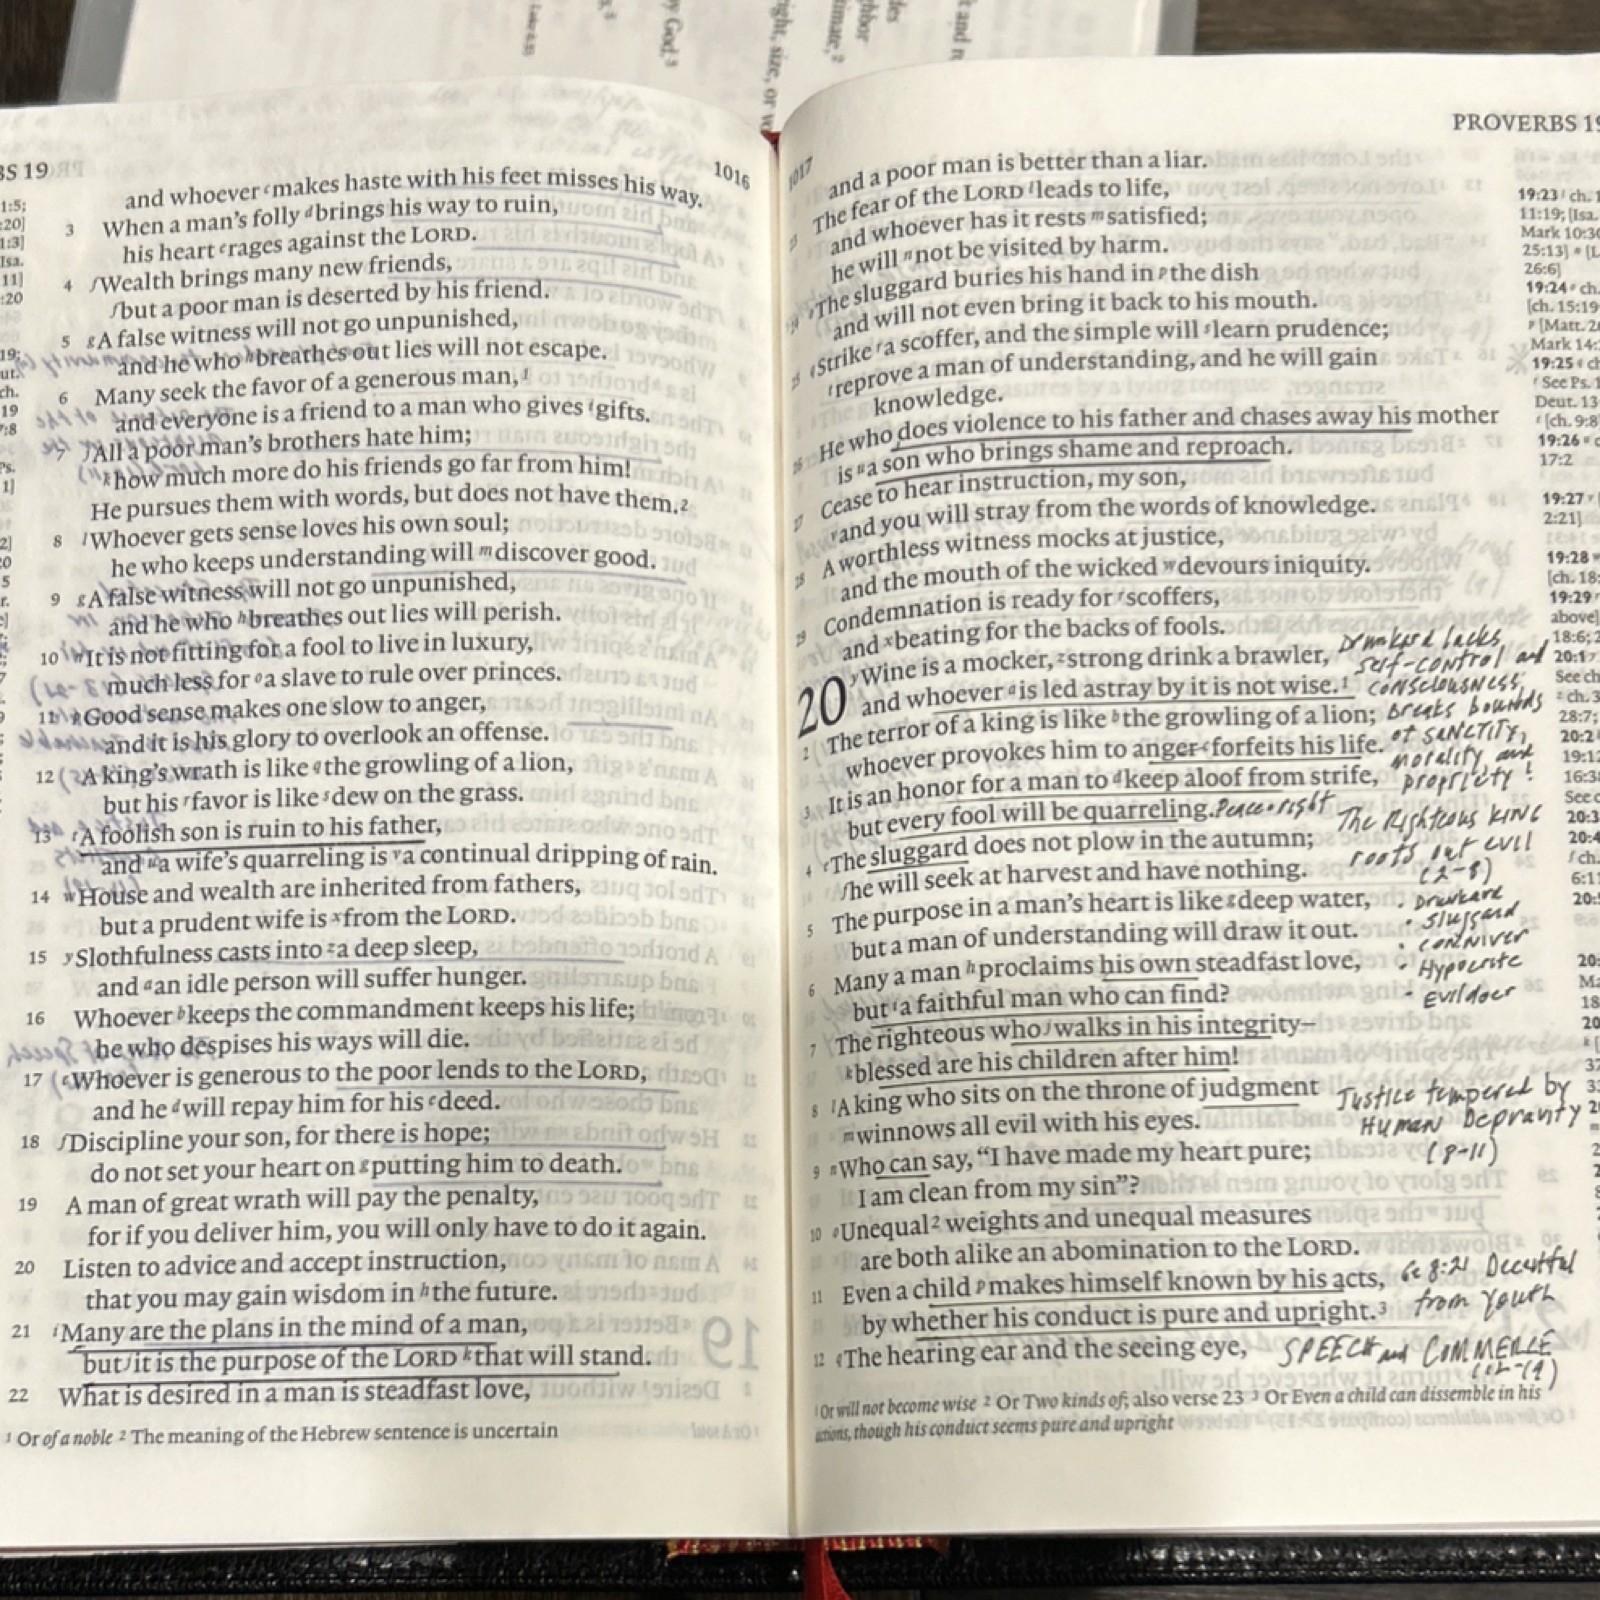 BS 19
1016
and whoever ᶜmakes haste with his feet misses his way.
3 When a man's folly ᵈbrings his way to ruin,
his heart ᵉrages against the LORD.
4 ᶠWealth brings many new friends,
ᶠbut a poor man is deserted by his friend.
5 ᵍA false witness will not go unpunished,
and he who ʰbreathes out lies will not escape.
6 Many seek the favor of a generous man,¹
and everyone is a friend to a man who gives ⁱgifts.
7 ʲAll a poor man's brothers hate him;
ᵏhow much more do his friends go far from him!
He pursues them with words, but does not have them.²
8 ˡWhoever gets sense loves his own soul;
he who keeps understanding will ᵐdiscover good.
9 ᵍA false witness will not go unpunished,
and he who ʰbreathes out lies will perish.
10 ⁿIt is not fitting for a fool to live in luxury,
much less for ᵒa slave to rule over princes.
11 ᵖGood sense makes one slow to anger,
and it is his glory to overlook an offense.
12 A king's wrath is like ᵠthe growling of a lion,
but his ʳfavor is like ˢdew on the grass.
13 ᵗA foolish son is ruin to his father,
and ᵘa wife's quarreling is ᵛa continual dripping of rain.
14 ʷHouse and wealth are inherited from fathers,
but a prudent wife is ˣfrom the LORD.
15 ʸSlothfulness casts into ᶻa deep sleep,
and ᵃan idle person will suffer hunger.
16 Whoever ᵇkeeps the commandment keeps his life;
he who despises his ways will die.
17 ᶜWhoever is generous to the poor lends to the LORD,
and he ᵈwill repay him for his ᵉdeed.
18 ᶠDiscipline your son, for there is hope;
do not set your heart on ᵍputting him to death.
19 A man of great wrath will pay the penalty,
for if you deliver him, you will only have to do it again.
20 Listen to advice and accept instruction,
that you may gain wisdom in ʰthe future.
21 ⁱMany are the plans in the mind of a man,
but ʲit is the purpose of the LORD ᵏthat will stand.
22 What is desired in a man is steadfast love,
¹ Or of a noble ² The meaning of the Hebrew sentence is uncertain
1017
PROVERBS 19
and a poor man is better than a liar.
23 The fear of the LORD ˡleads to life,
and whoever has it rests ᵐsatisfied;
he will ⁿnot be visited by harm.
24 ᵒThe sluggard buries his hand in ᵖthe dish
and will not even bring it back to his mouth.
25 Strike ʳa scoffer, and the simple will ˢlearn prudence;
ᵗreprove a man of understanding, and he will gain
knowledge.
26 He who does violence to his father and chases away his mother
is ᵘa son who brings shame and reproach.
27 Cease to hear instruction, my son,
ᵛand you will stray from the words of knowledge.
28 A worthless witness mocks at justice,
and the mouth of the wicked ʷdevours iniquity.
29 Condemnation is ready for ʳscoffers,
and ˣbeating for the backs of fools.
20 ʸWine is a mocker, ᶻstrong drink a brawler,
and whoever ᵃis led astray by it is not wise.¹
2 The terror of a king is like ᵇthe growling of a lion;
whoever provokes him to anger ᶜforfeits his life.
3 It is an honor for a man to ᵈkeep aloof from strife,
but every fool will be quarreling.
4 ᵉThe sluggard does not plow in the autumn;
ᶠhe will seek at harvest and have nothing.
5 The purpose in a man's heart is like ᵍdeep water,
but a man of understanding will draw it out.
6 Many a man ʰproclaims his own steadfast love,
but ⁱa faithful man who can find?
7 The righteous who ʲwalks in his integrity—
ᵏblessed are his children after him!
8 ˡA king who sits on the throne of judgment
ᵐwinnows all evil with his eyes.
9 ⁿWho can say, "I have made my heart pure;
I am clean from my sin"?
10 ᵒUnequal² weights and unequal measures
are both alike an abomination to the LORD.
11 Even a child ᵖmakes himself known by his acts,
by whether his conduct is pure and upright.³
12 ᵠThe hearing ear and the seeing eye,
¹ Or will not become wise ² Or Two kinds of; also verse 23 ³ Or Even a child can dissemble in his
actions, though his conduct seems pure and upright
Drunkard lacks
self-control and
consciousness;
Breaks bounds
of sanctity,
morality and
propriety!
The Righteous King
roots out evil
(2-8)
· Drunkard
· sluggard
· conniver
· Hypocrite
- Evildoer
Justice tempered by
Human Depravity
(8-11)
Ge 8:21 Deceitful
from youth
SPEECH and COMMERCE
(12-19)
19:23
11:19; [Isa.
Mark 10:30
25:13]
26:6]
19:24
[ch. 15:19
[Matt. 26
Mark 14:
19:25
See Ps. 1
Deut. 13
[ch. 9:8
19:26
17:2
19:27
2:21]
19:28
[ch. 18:
19:29
above]
18:6;
20:1
See ch
ch. 3
28:7;
20:2
19:12
16:3
See c
20:3
20:4
ch.
6:11